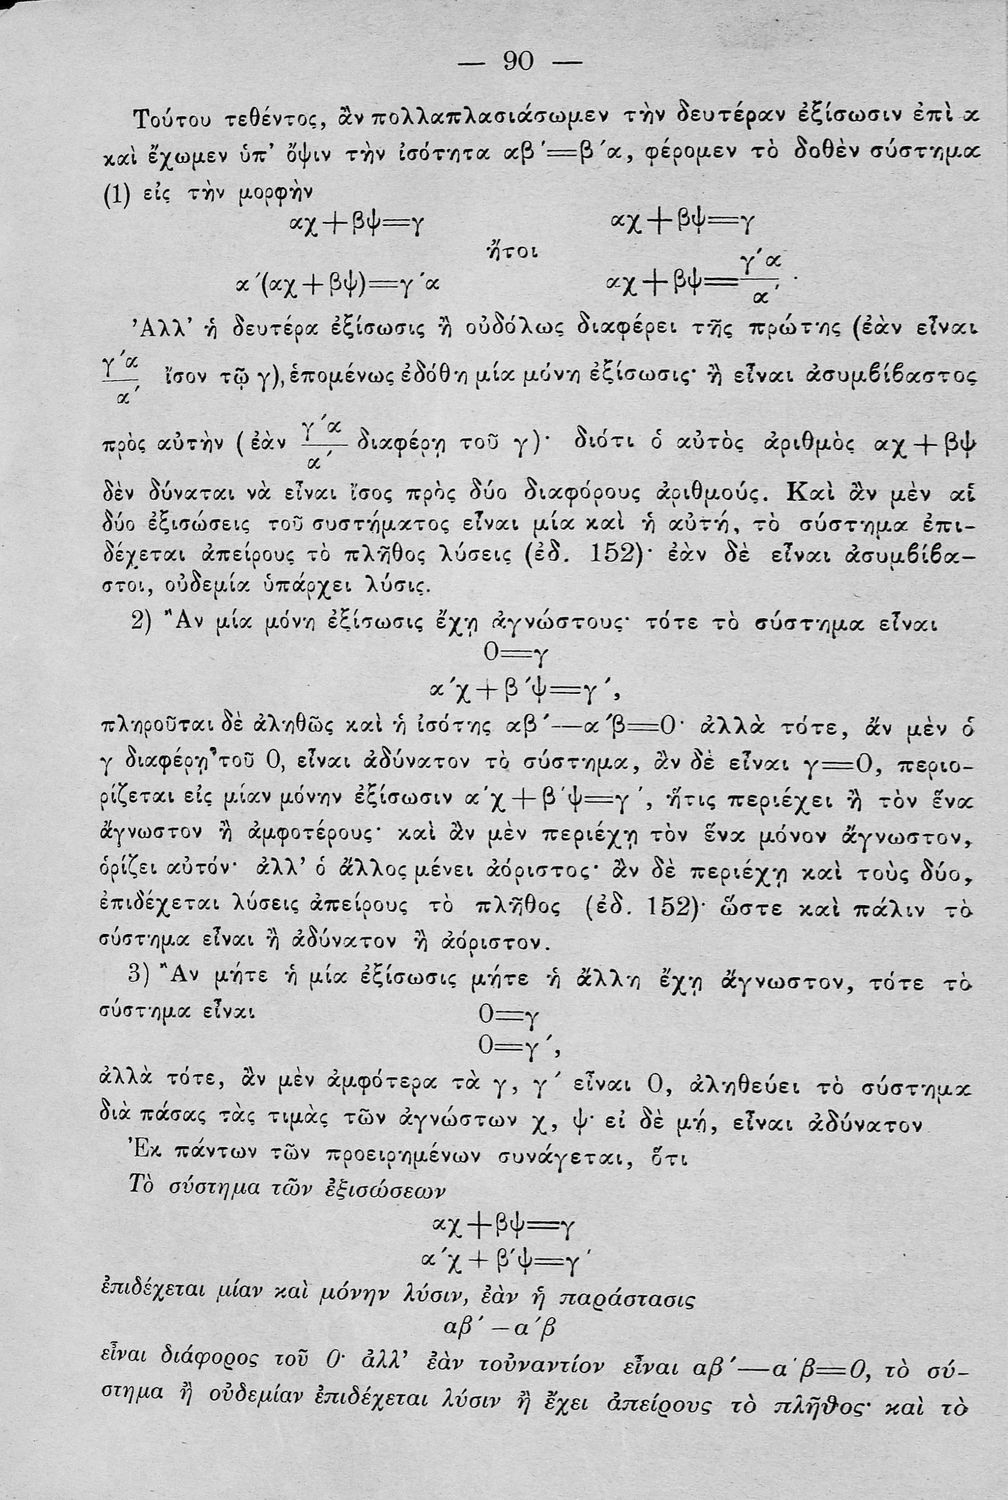 — 90 —
Τούτου τεθέντος, ἂν πολλαπλασιάσωμεν τὴν δευτέραν ἐξίσωσιν ἐπὶ α
καὶ ἔχωμεν ὑπ' ὄψιν τὴν ἰσότητα αβ΄=β΄α, φέρομεν τὸ δοθὲν σύστημα
(1) εἰς τὴν μορφὴν
αχ+βψ=γ αχ+βψ=γ
ἤτοι
α΄(αχ+βψ)=γ΄α αχ+βψ=γ΄α/α΄.
Ἀλλ' ἡ δευτέρα ἐξίσωσις ἢ οὐδόλως διαφέρει τῆς πρώτης (ἐὰν εἶναι
γ΄α/α΄ ἴσον τῷ γ), ἑπομένως ἐδόθη μία μόνη ἐξίσωσις· ἢ εἶναι ἀσυμβίβαστος
πρὸς αὐτὴν (ἐὰν γ΄α/α΄ διαφέρῃ τοῦ γ)· διότι ὁ αὐτὸς ἀριθμὸς αχ+βψ
δὲν δύναται νὰ εἶναι ἴσος πρὸς δύο διαφόρους ἀριθμούς. Καὶ ἂν μὲν αἱ
δύο ἐξισώσεις τοῦ συστήματος εἶναι μία καὶ ἡ αὐτή, τὸ σύστημα ἐπι-
δέχεται ἀπείρους τὸ πλῆθος λύσεις (ἐδ. 152)· ἐὰν δὲ εἶναι ἀσυμβίβα-
στοι, οὐδεμία ὑπάρχει λύσις.
2) Ἂν μία μόνη ἐξίσωσις ἔχῃ ἀγνώστους· τότε τὸ σύστημα εἶναι
0=γ
α΄χ+β΄ψ=γ΄,
πληροῦται δὲ ἀληθῶς καὶ ἡ ἰσότης αβ΄—α΄β=0· ἀλλὰ τότε, ἄν μὲν ὁ
γ διαφέρῃ τοῦ 0, εἶναι ἀδύνατον τὸ σύστημα, ἂν δὲ εἶναι γ=0, περιο-
ρίζεται εἰς μίαν μόνην ἐξίσωσιν α΄χ+β΄ψ=γ΄, ἥτις περιέχει ἢ τὸν ἕνα
ἄγνωστον ἢ ἀμφοτέρους· καὶ ἂν μὲν περιέχῃ τὸν ἕνα μόνον ἄγνωστον,
ὁρίζει αὐτόν· ἀλλ' ὁ ἄλλος μένει ἀόριστος· ἂν δὲ περιέχῃ καὶ τοὺς δύο,
ἐπιδέχεται λύσεις ἀπείρους τὸ πλῆθος (ἐδ. 152)· ὥστε καὶ πάλιν τὸ
σύστημα εἶναι ἢ ἀδύνατον ἢ ἀόριστον.
3) Ἂν μήτε ἡ μία ἐξίσωσις μήτε ἡ ἄλλη ἔχῃ ἄγνωστον, τότε τὸ
σύστημα εἶναι 0=γ
0=γ΄,
ἀλλὰ τότε, ἂν μὲν ἀμφότερα τὰ γ, γ΄ εἶναι 0, ἀληθεύει τὸ σύστημα
διὰ πάσας τὰς τιμὰς τῶν ἀγνώστων χ, ψ· εἰ δὲ μή, εἶναι ἀδύνατον
Ἐκ πάντων τῶν προειρημένων συνάγεται, ὅτι
Τὸ σύστημα τῶν ἐξισώσεων
αχ+βψ=γ
α΄χ+β΄ψ=γ΄
ἐπιδέχεται μίαν καὶ μόνην λύσιν, ἐὰν ἡ παράστασις
αβ΄—α΄β
εἶναι διάφορος τοῦ 0· ἀλλ' ἐὰν τοὐναντίον εἶναι αβ΄—α΄β=0, τὸ σύ-
στημα ἢ οὐδεμίαν ἐπιδέχεται λύσιν ἢ ἔχει ἀπείρους τὸ πλῆθος· καὶ τὸ